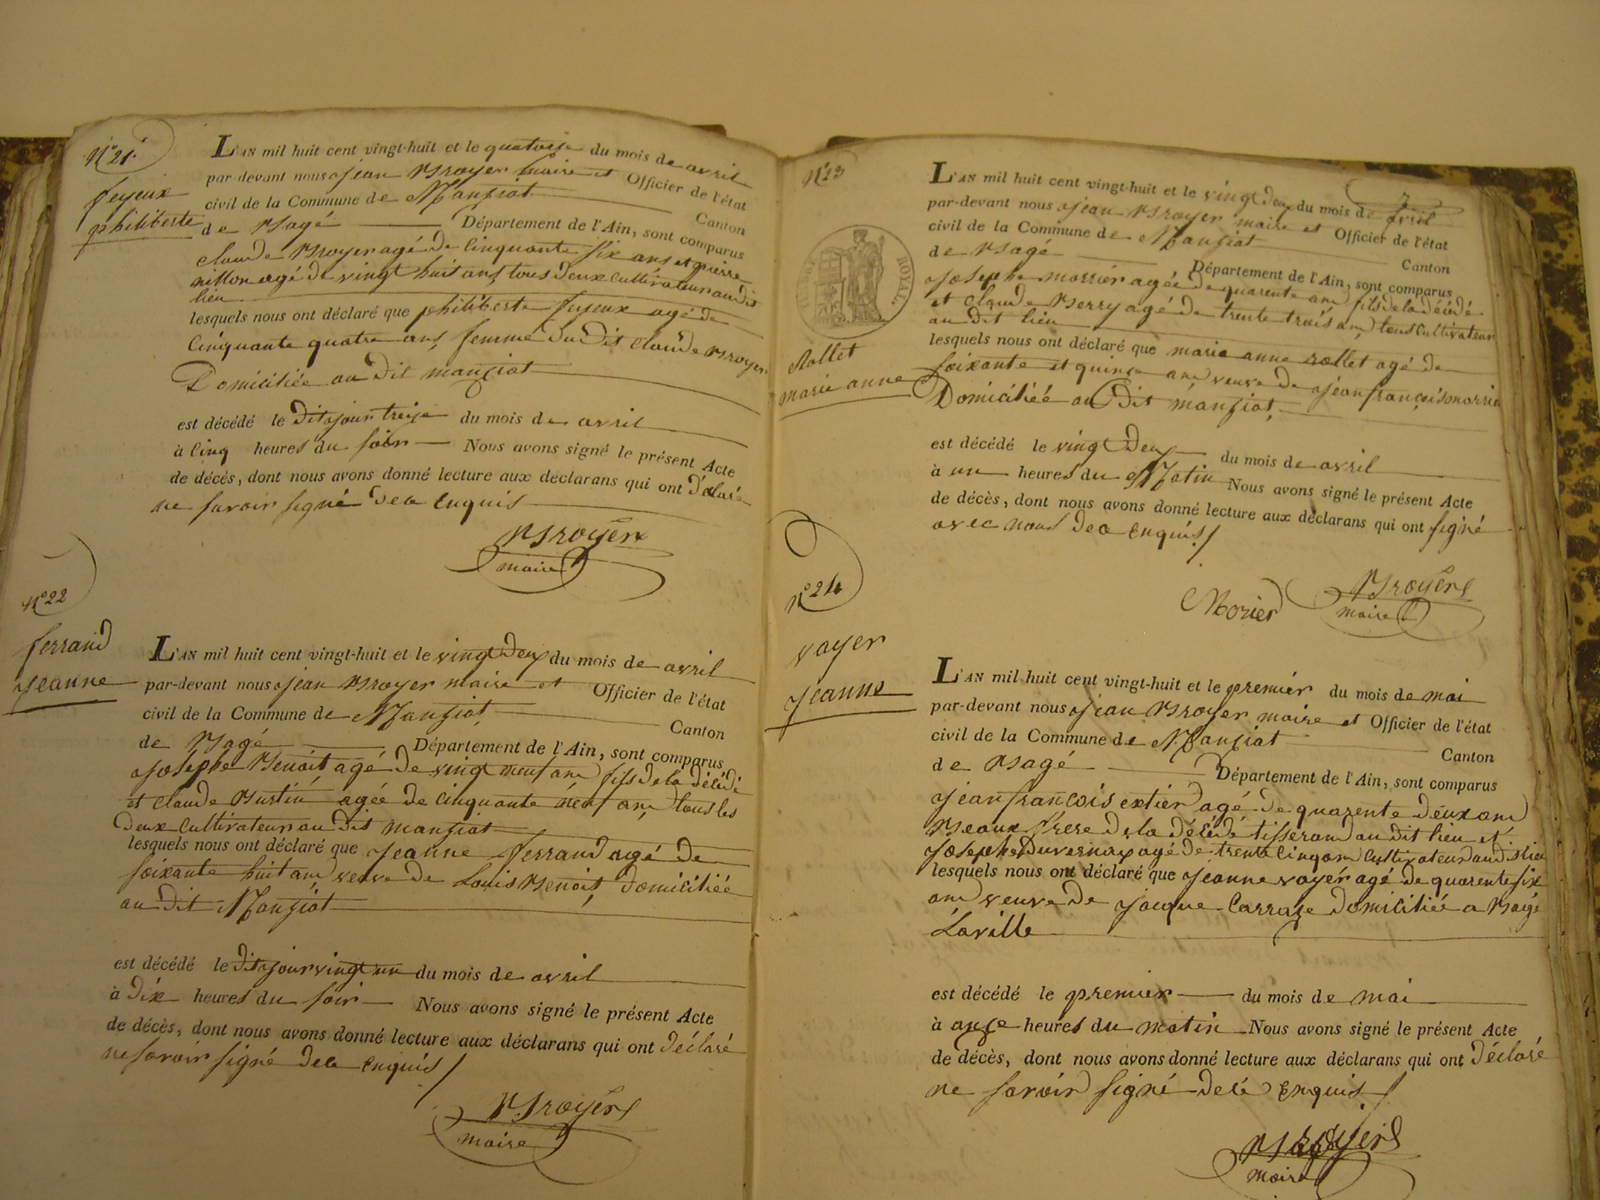 N° 21.
feyeux
philiberte
L'AN mil huit cent vingt-huit et le quatorze du mois de avril
par-devant nous jean Broyer maire et Officier de l'état
civil de la Commune de Manziat Canton
de Bagé Département de l'Ain, sont comparus
claude Broyer agé de Cinquante six ans et pierre
nillon agé de vingt huit ans tous deux Cultivateur au dit
lieu
lesquels nous ont déclaré que philiberte feyeux agé de
Cinquante quatre ans femme du Dit claude Broyer
Domiciliée au Dit manziat
est décédé le Dit jour treize du mois de avril
à Cinq heures du soir Nous avons signé le présent Acte
de décès, dont nous avons donné lecture aux déclarans qui ont Déclaré
ne savoir signé de ce Enquis
Broyer
maire
N° 22
ferrand
jeanne
L'AN mil huit cent vingt-huit et le vingt Deux du mois de avril
par-devant nous jean Broyer maire et Officier de l'état
civil de la Commune de Manziat Canton
de Bagé Département de l'Ain, sont comparus
josephe Benoit agé de vingt neuf ans fils de la décédé
et claude Bustin agée de Cinquante neuf ans tous les
Deux Cultivateur au Dit manziat
lesquels nous ont déclaré que jeanne ferrand agé de
soixante huit ans veuve de Louis Benoit, domiciliée
au dit Manziat
est décédé le Dit jour vingt un du mois de avril
à Dix heures du soir Nous avons signé le présent Acte
de décès, dont nous avons donné lecture aux déclarans qui ont Déclaré
ne savoir signé de ce Enquis
Broyer
maire
N° 23
7
ROYAL
Rollet
marie anne
L'AN mil huit cent vingt-huit et le vingt Deux du mois de avril
par-devant nous jean Broyer maire et Officier de l'état
civil de la Commune de Manziat Canton
de Bagé Département de l'Ain, sont comparus
josephe morrier agée de quarente ans fils de la décédé
et claude Berry agé de trente trois ans tous Cultivateur
au dit lieu
lesquels nous ont déclaré que marie anne rollet agé de
soixante et quinze ans veuve de jean françois morrier
Domiciliée au Dit manziat
est décédé le vingt Deux du mois de avril
à un heures du Matin Nous avons signé le présent Acte
de décès, dont nous avons donné lecture aux déclarans qui ont signé
avec nous de ce Enquis
Morier
Broyer
maire
N° 24
voyer
jeanne
L'AN mil huit cent vingt-huit et le premier du mois de mai
par-devant nous jean Broyer maire et Officier de l'état
civil de la Commune de Manziat Canton
de Bagé Département de l'Ain, sont comparus
jean françois extier agé de quarente deux ans
Beaux frere de la décédé tisserand au dit lieu et
joseph Duvernay agé de trente Cinq ans Cultivateur au dit lieu
lesquels nous ont déclaré que jeanne voyer agé de quarente six
ans veuve de jacque Carraze domiciliée a Bagé
Laville
est décédé le premier du mois de mai
à onze heures du matin Nous avons signé le présent Acte
de décès, dont nous avons donné lecture aux déclarans qui ont Déclaré
ne savoir signé de ce Enquis
Broyer
maire